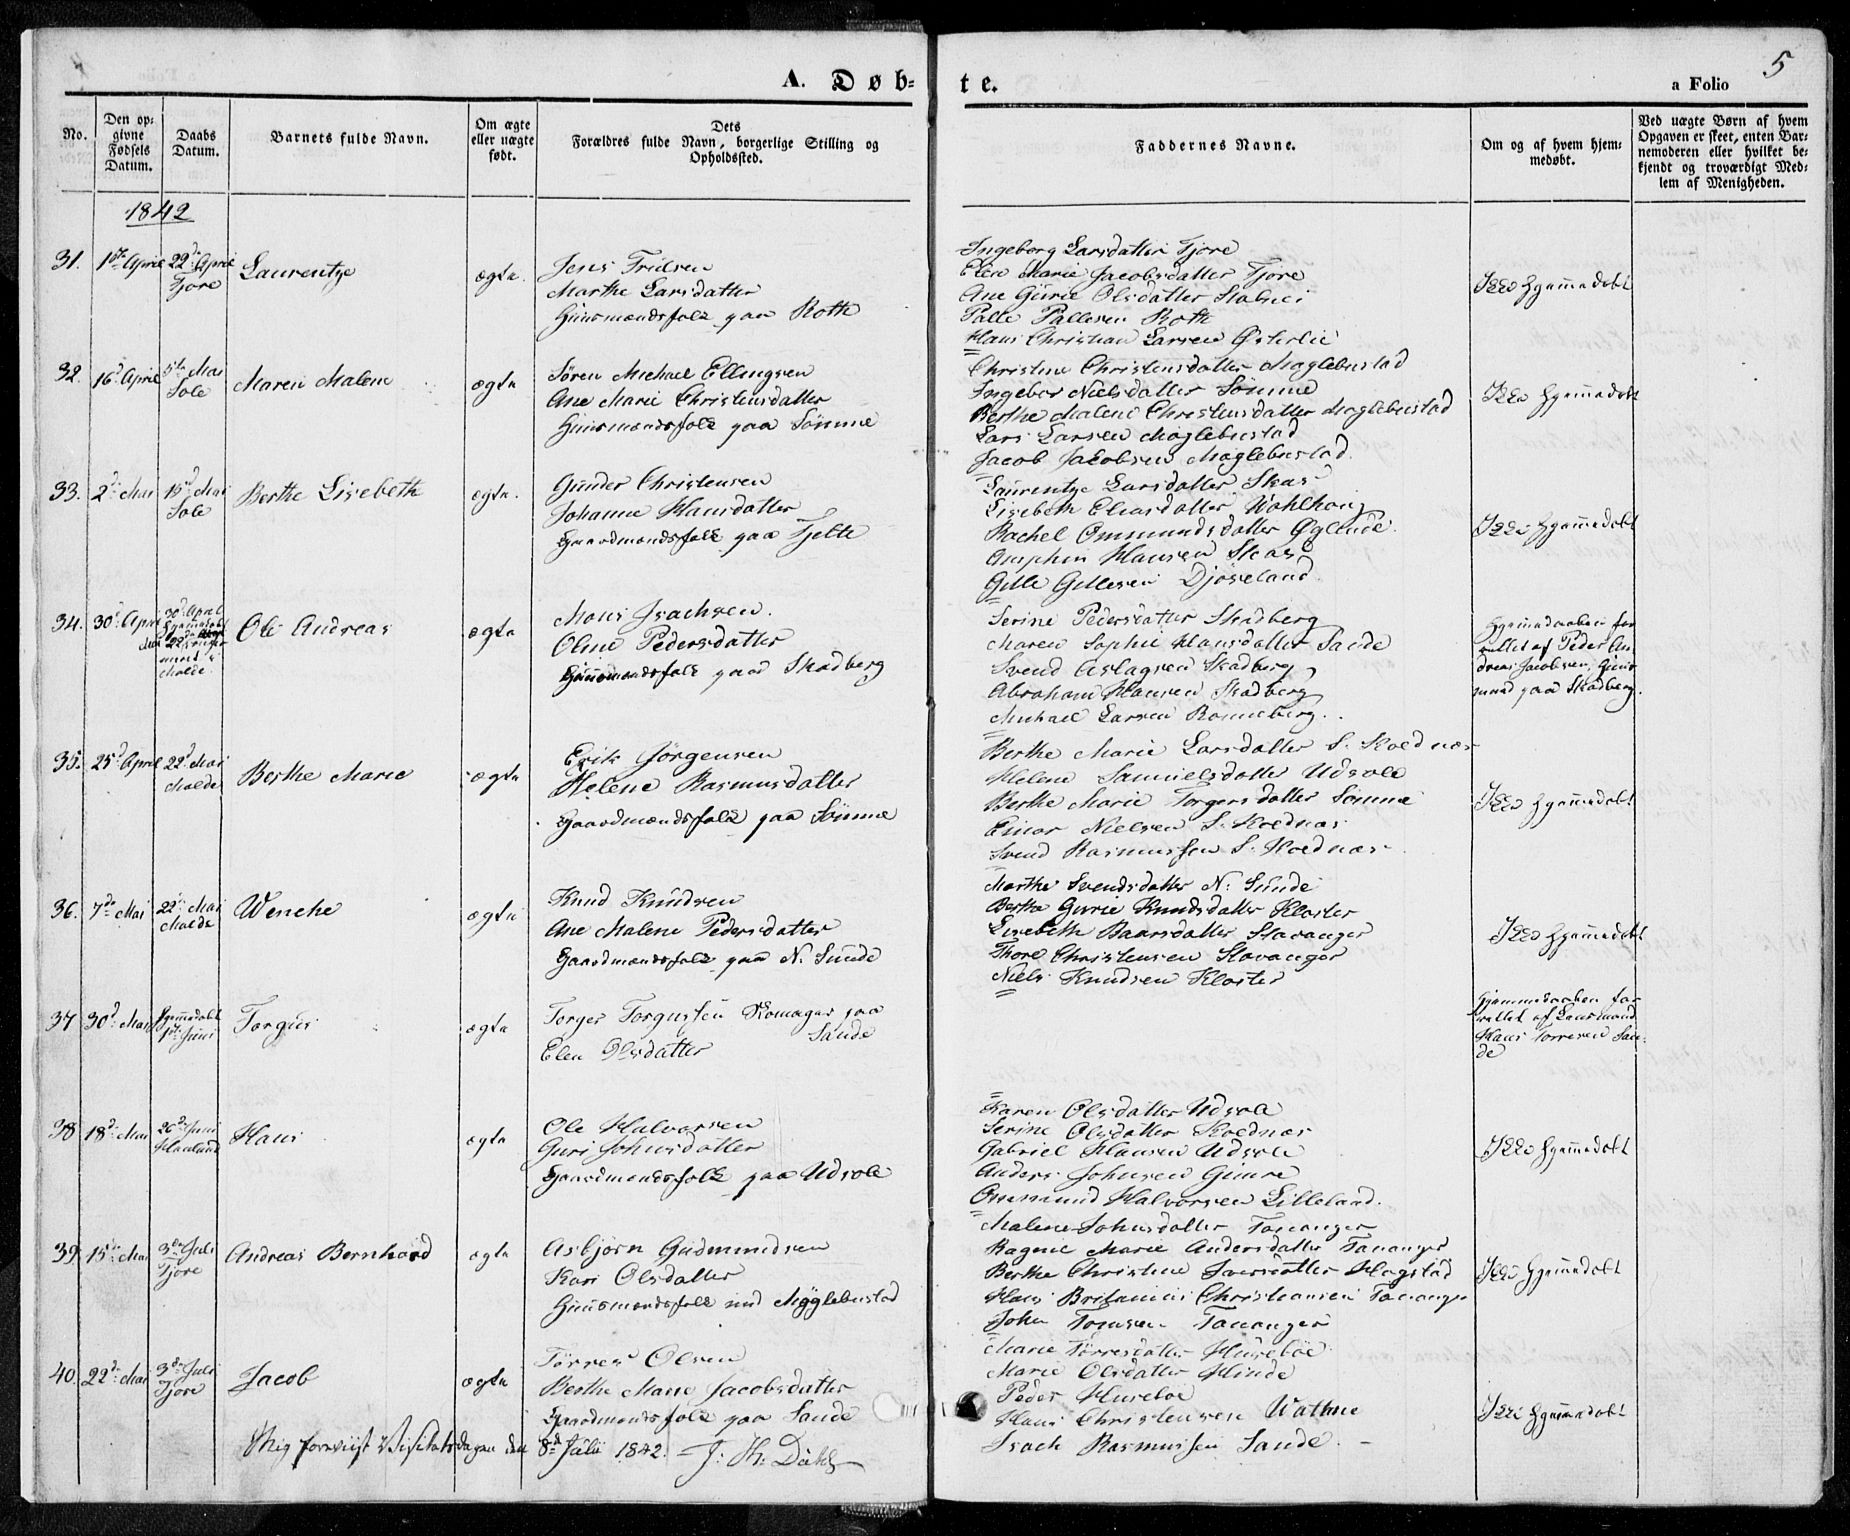 5
A. Døb-
te.
a Folio
No.
Den op-
givne
Fødsels
Datum.
Daabs
Datum.
Barnets fulde Navn.
Om ægte
eller uægte
født.
Dets
Forældres fulde Navn, borgerlige Stilling og
Opholdssted.
Faddernes Navne.
Om og af hvem hjem-
medøbt.
Ved uægte Børn af hvem
Opgaven er skeet, enten Bar-
nemoderen eller hvilket be-
kjendt og troværdigt Med-
lem af Menigheden.
1842
31.
1ste April
22de April
Tjore
Laurentze
ægte.
Jens
Marthe Larsdatter
Huusmandsfolk paa Roth
Ingeborg Larsdatter Tjore
Elen Marie Jacobsdatter Tjore
Ane Gurie Olsdatter
Palle Pallesen Roth
Hans Christian Larsen Østerlie
Ikke hjemmedøbt
32.
16d April
5te Mai
Sole
Maren Malene
ægte
Søren Michael Ellingsen
Ane Marie Christensdatter
Huusmandsfolk paa Sømme
Christine Christensdatter Meglebustad
Ingebor Nielsdatter Sømme
Berthe Malene Christensdatter Meglebustad
Lars Larsen Meglebustad
Jacob Jacobsen Meglebustad
Ikke hjemmedøbt
33.
2d Mai
15d Mai
Sole
Berthe Lisebeth
ægte.
Gunder Christensen
Johanne Hansdatter
Gaardmandsfolk paa Tjelte
Laurentze Larsdatter Skas
Lisebeth Eliasdatter
Rachel Ommundsdatter Øglende
Omphin Hansen Skas
Gitle Gitlesen
Ikke hjemmedøbt
34.
30d April
30d April
hjemmedøbt
22d
Malde
Ole Andreas
ægte
Mons Isachsen.
Oline Pedersdatter
Huusmandsfolk paa Skadberg
Serine Pedersdatter Skadberg
Maren Sophie Hansdatter Sande
Svend Aslagsen Skadberg
Abraham Hansen Skadberg
Michael Larsen Ronneberg.
Hjemmedaaben for
rettet af Peder An
dreas Jacobsen, Huus
mand paa Skadberg.
35.
25d April
22d Mai
Malde
Berthe Marie
ægte
Erik Jørgensen
Helene Rasmusdatter
Gaardmandsfolk paa Sømme
Berthe Marie Larsdatter S. Koldnæs
Helene Samuelsdatter Udsole
Berthe Marie Torgersdatter Sømme
Einar Nielsen S. Koldnæs
Svend Rasmussen S. Koldnæs
Ikke hjemmedøbt
36.
7de Mai
22d Mai
Malde
Wenche
ægte
Knud Knudsen
Ane Malene Pedersdatter
Gaardmandsfolk paa N. Sunde
Marthe Svendsdatter N. Sunde
Berthe Gurie Knudsdatter Kloster
Lisebeth Baarsdatter Stavanger
Thore Christensen Stavanger
Niels Knudsen Kloster
Ikke hjemmedøbt
37
30d Mai
hjemmedøbt
1ste Juni
Torgus
ægte
Torger Torgussen Skomager paa
Sande
Elen Olsdatter
Hjemmedaaben for
rettet af Lensmand
Hans Torresen San-
de
38
18d Mai
26de Juni
Haaland
Hans
ægte
Ole Halvorsen
Guri Johnsdatter
Gaardmandsfolk paa Udsole
Karen Olsdatter Udsole
Serine Olsdatter Koldnæs
Gabriel Hansen Udsole
Anders Johnsen Gimre
Ommund Halvorsen Lilleland.
Ikke hjemmedøbt
39.
15de Mai
3die Juli
Tjore
Andreas Bernhard
ægte
Asbjørn Gudmundsen
Kari Olsdatter
Huusmandsfolk ved Meglebustad
Malene Johnsdatter Tananger
Ragnil Marie Andersdatter Tananger
Berthe Christine Hogstad
Hans Britanius Christiansen Tananger
John Tomsen Tananger
Ikke hjemmedøbt
40.
22de Mai
3die Juli
Tjore
Jacob
ægte
Tørres Olsen
Berthe Marie Jacobsdatter
Gaardmandsfolk paa Sande
Marie Tørresdatter Husebøe
Marie Olsdatter Hinde
Peder Husebøe
Hans Christensen Wathne
Isach Rasmussen Sande.
Ikke hjemmedøbt
Mig foreviist Visitatsdagen den 8d Juli 1842. J. H. Dahl